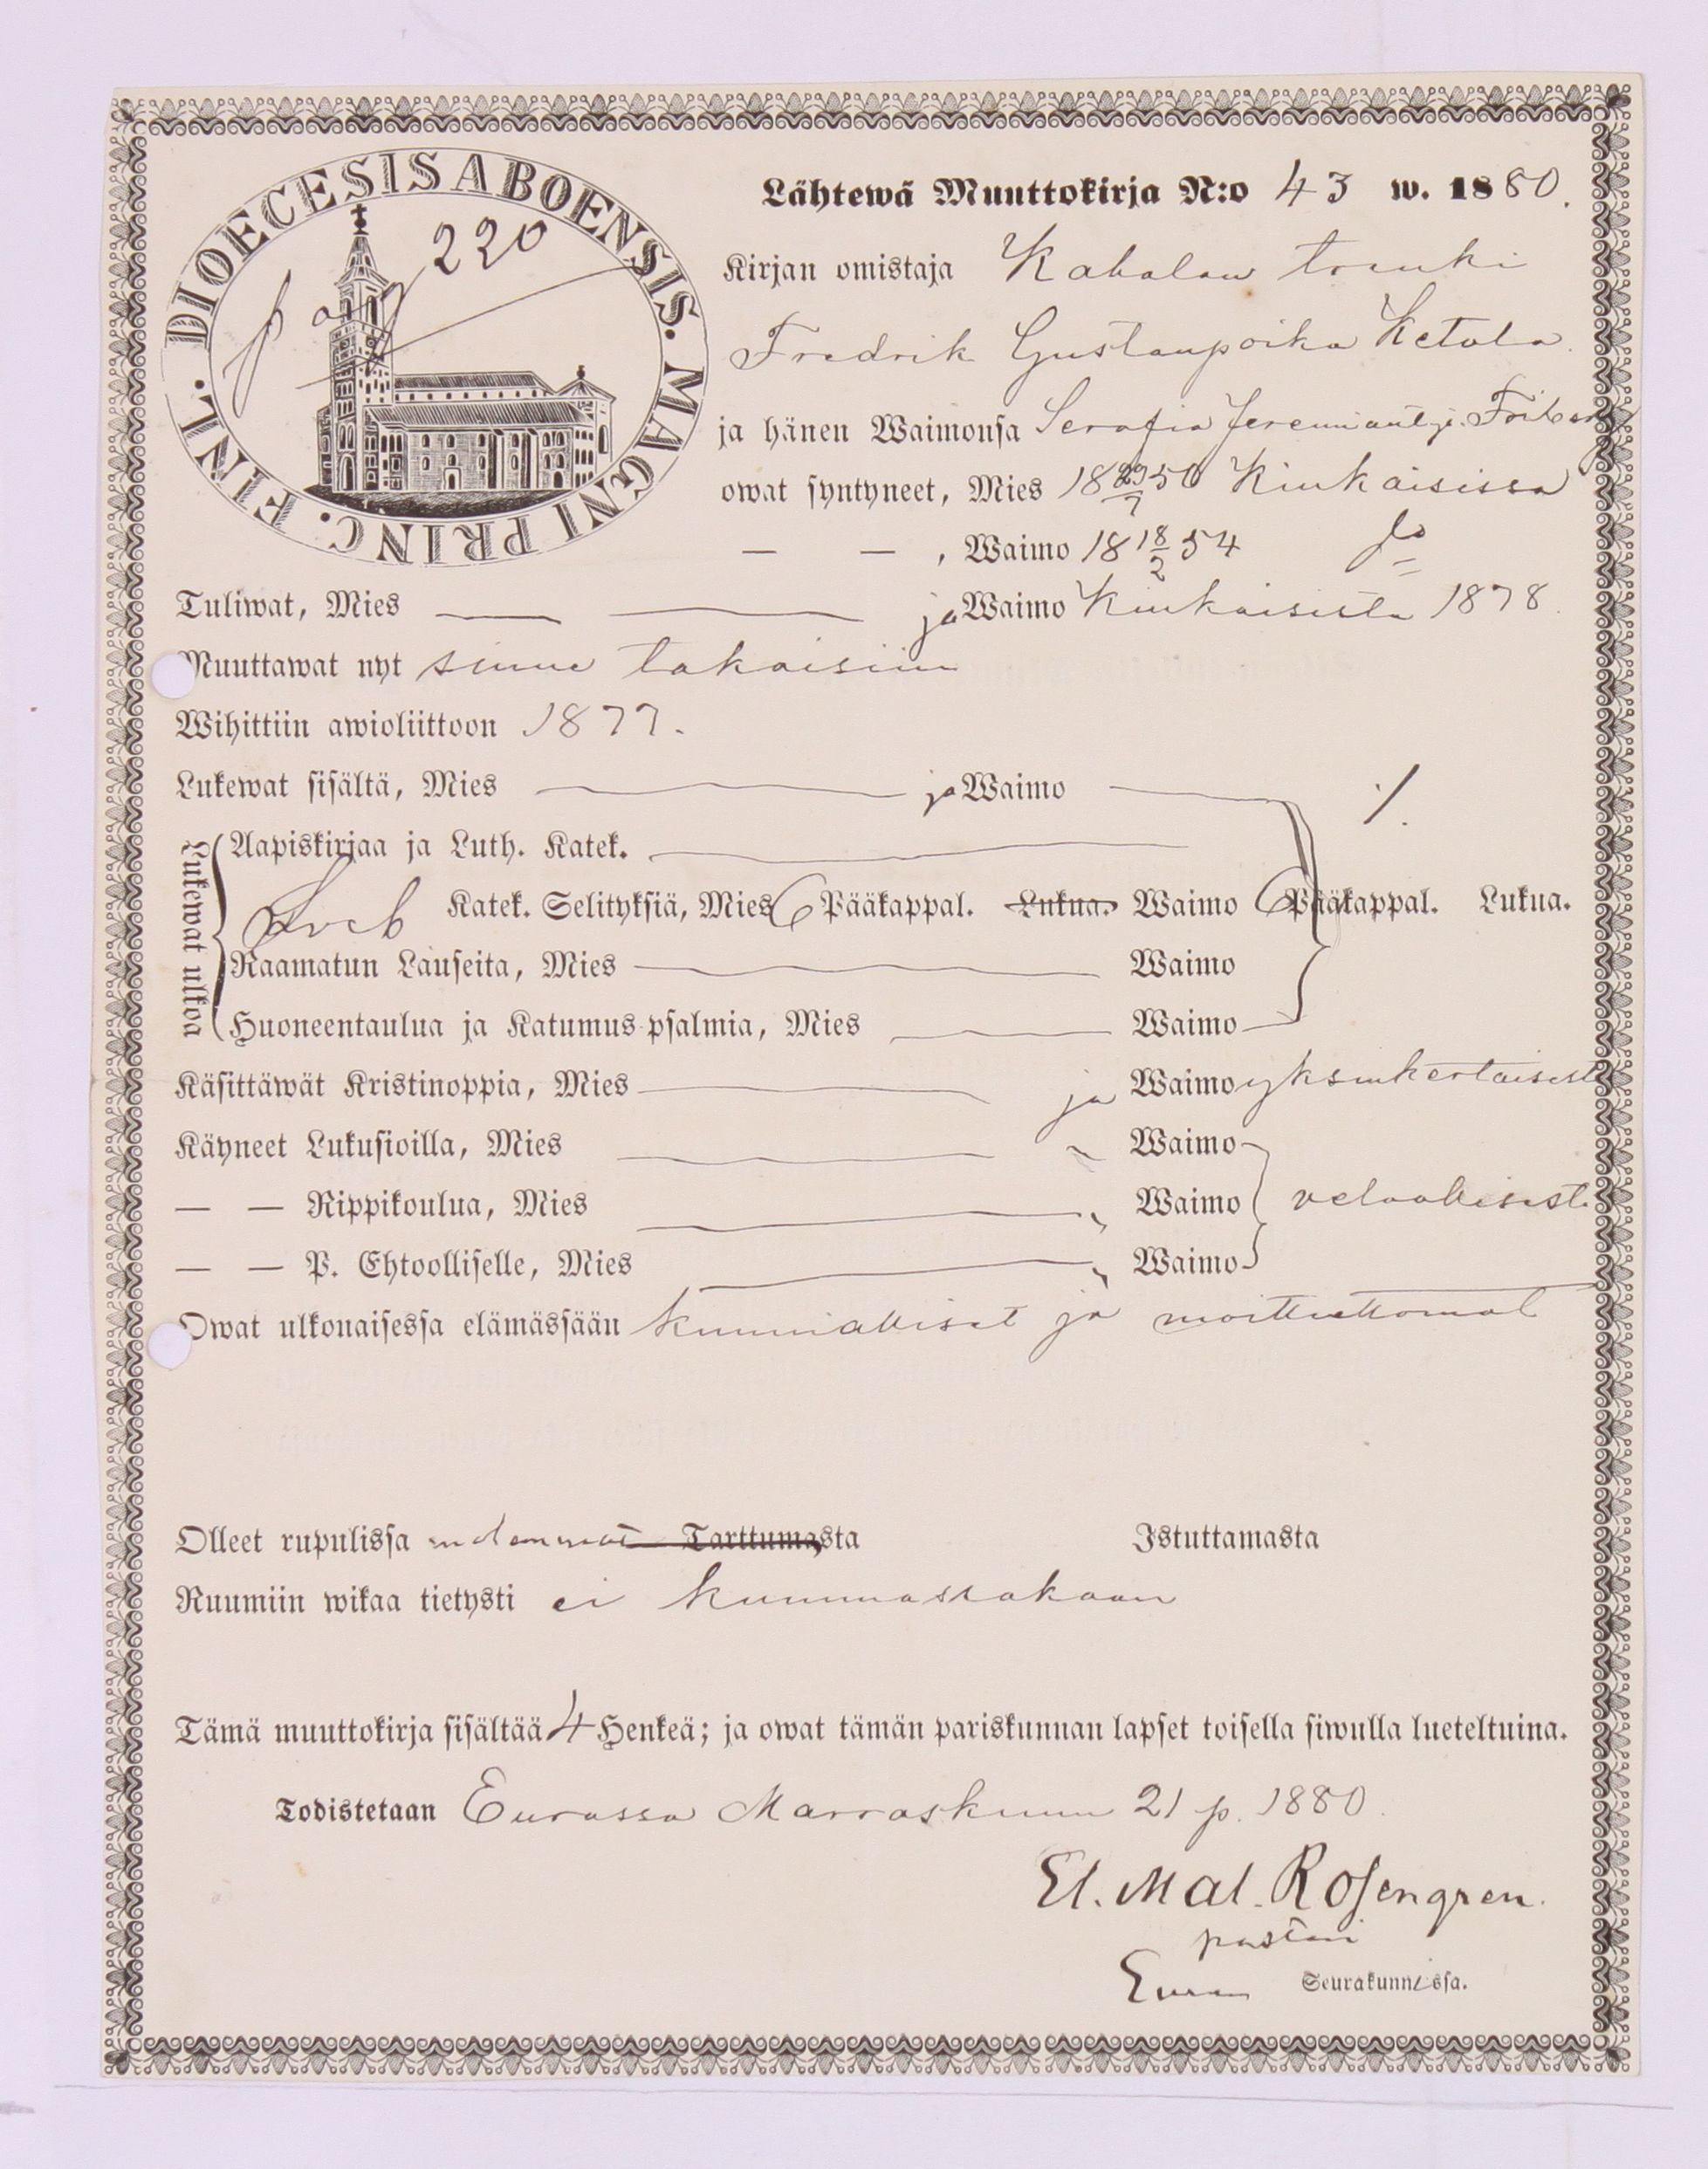 DIOECESIS ABOENSIS. MAGNI PRINC. FINL.
pag 220
Lähtewä Muuttokirja N:o 43 w. 1880.
Kirjan omistaja Kahalan
Fredrik Gustaupoika Ketola
ja hänen Waimonsa Serafia
owat syntyneet, Mies 18 29/7 50 Kiukaisissa
— — , Waimo 18 18/2 54 Do
Tuliwat, Mies — — ja Waimo Kiukaisista 1878.
Muuttawat nyt sinne takaisiin
Wihittiin awioliittoon 1877.
Lukewat sisältä, Mies — ja Waimo — /.
Lukewat ulkoa
Aapiskirjaa ja Luth. Katek.
Sveb Katek. Selityksiä, Mies 6 Pääkappal. Lukua. Waimo 6 Pääkappal. Lukua.
Raamatun Lauseita, Mies — Waimo
Huoneentaulua ja Katumus-psalmia, Mies — Waimo
Käsittäwät Kristinoppia, Mies — ja Waimo yksinkertaisesti
Käyneet Lukusioilla, Mies — " Waimo
— — Rippikoulua, Mies — " Waimo
— — P. Ehtoolliselle, Mies — " Waimo
Owat ulkonaisessa elämässään kunnialliset ja moitteettomat
Olleet rupulissa molemmat Tarttumasta Istuttamasta
Ruumiin wikaa tietysti ei kummassakaan
Tämä muuttokirja sisältää 4 Henkeä; ja owat tämän pariskunnan lapset toisella siwulla lueteltuina.
Todistetaan Eurassa Marraskuun 21 p. 1880.
El. Mat. Rosengren.
pastori
Euran Seurakunnissa.